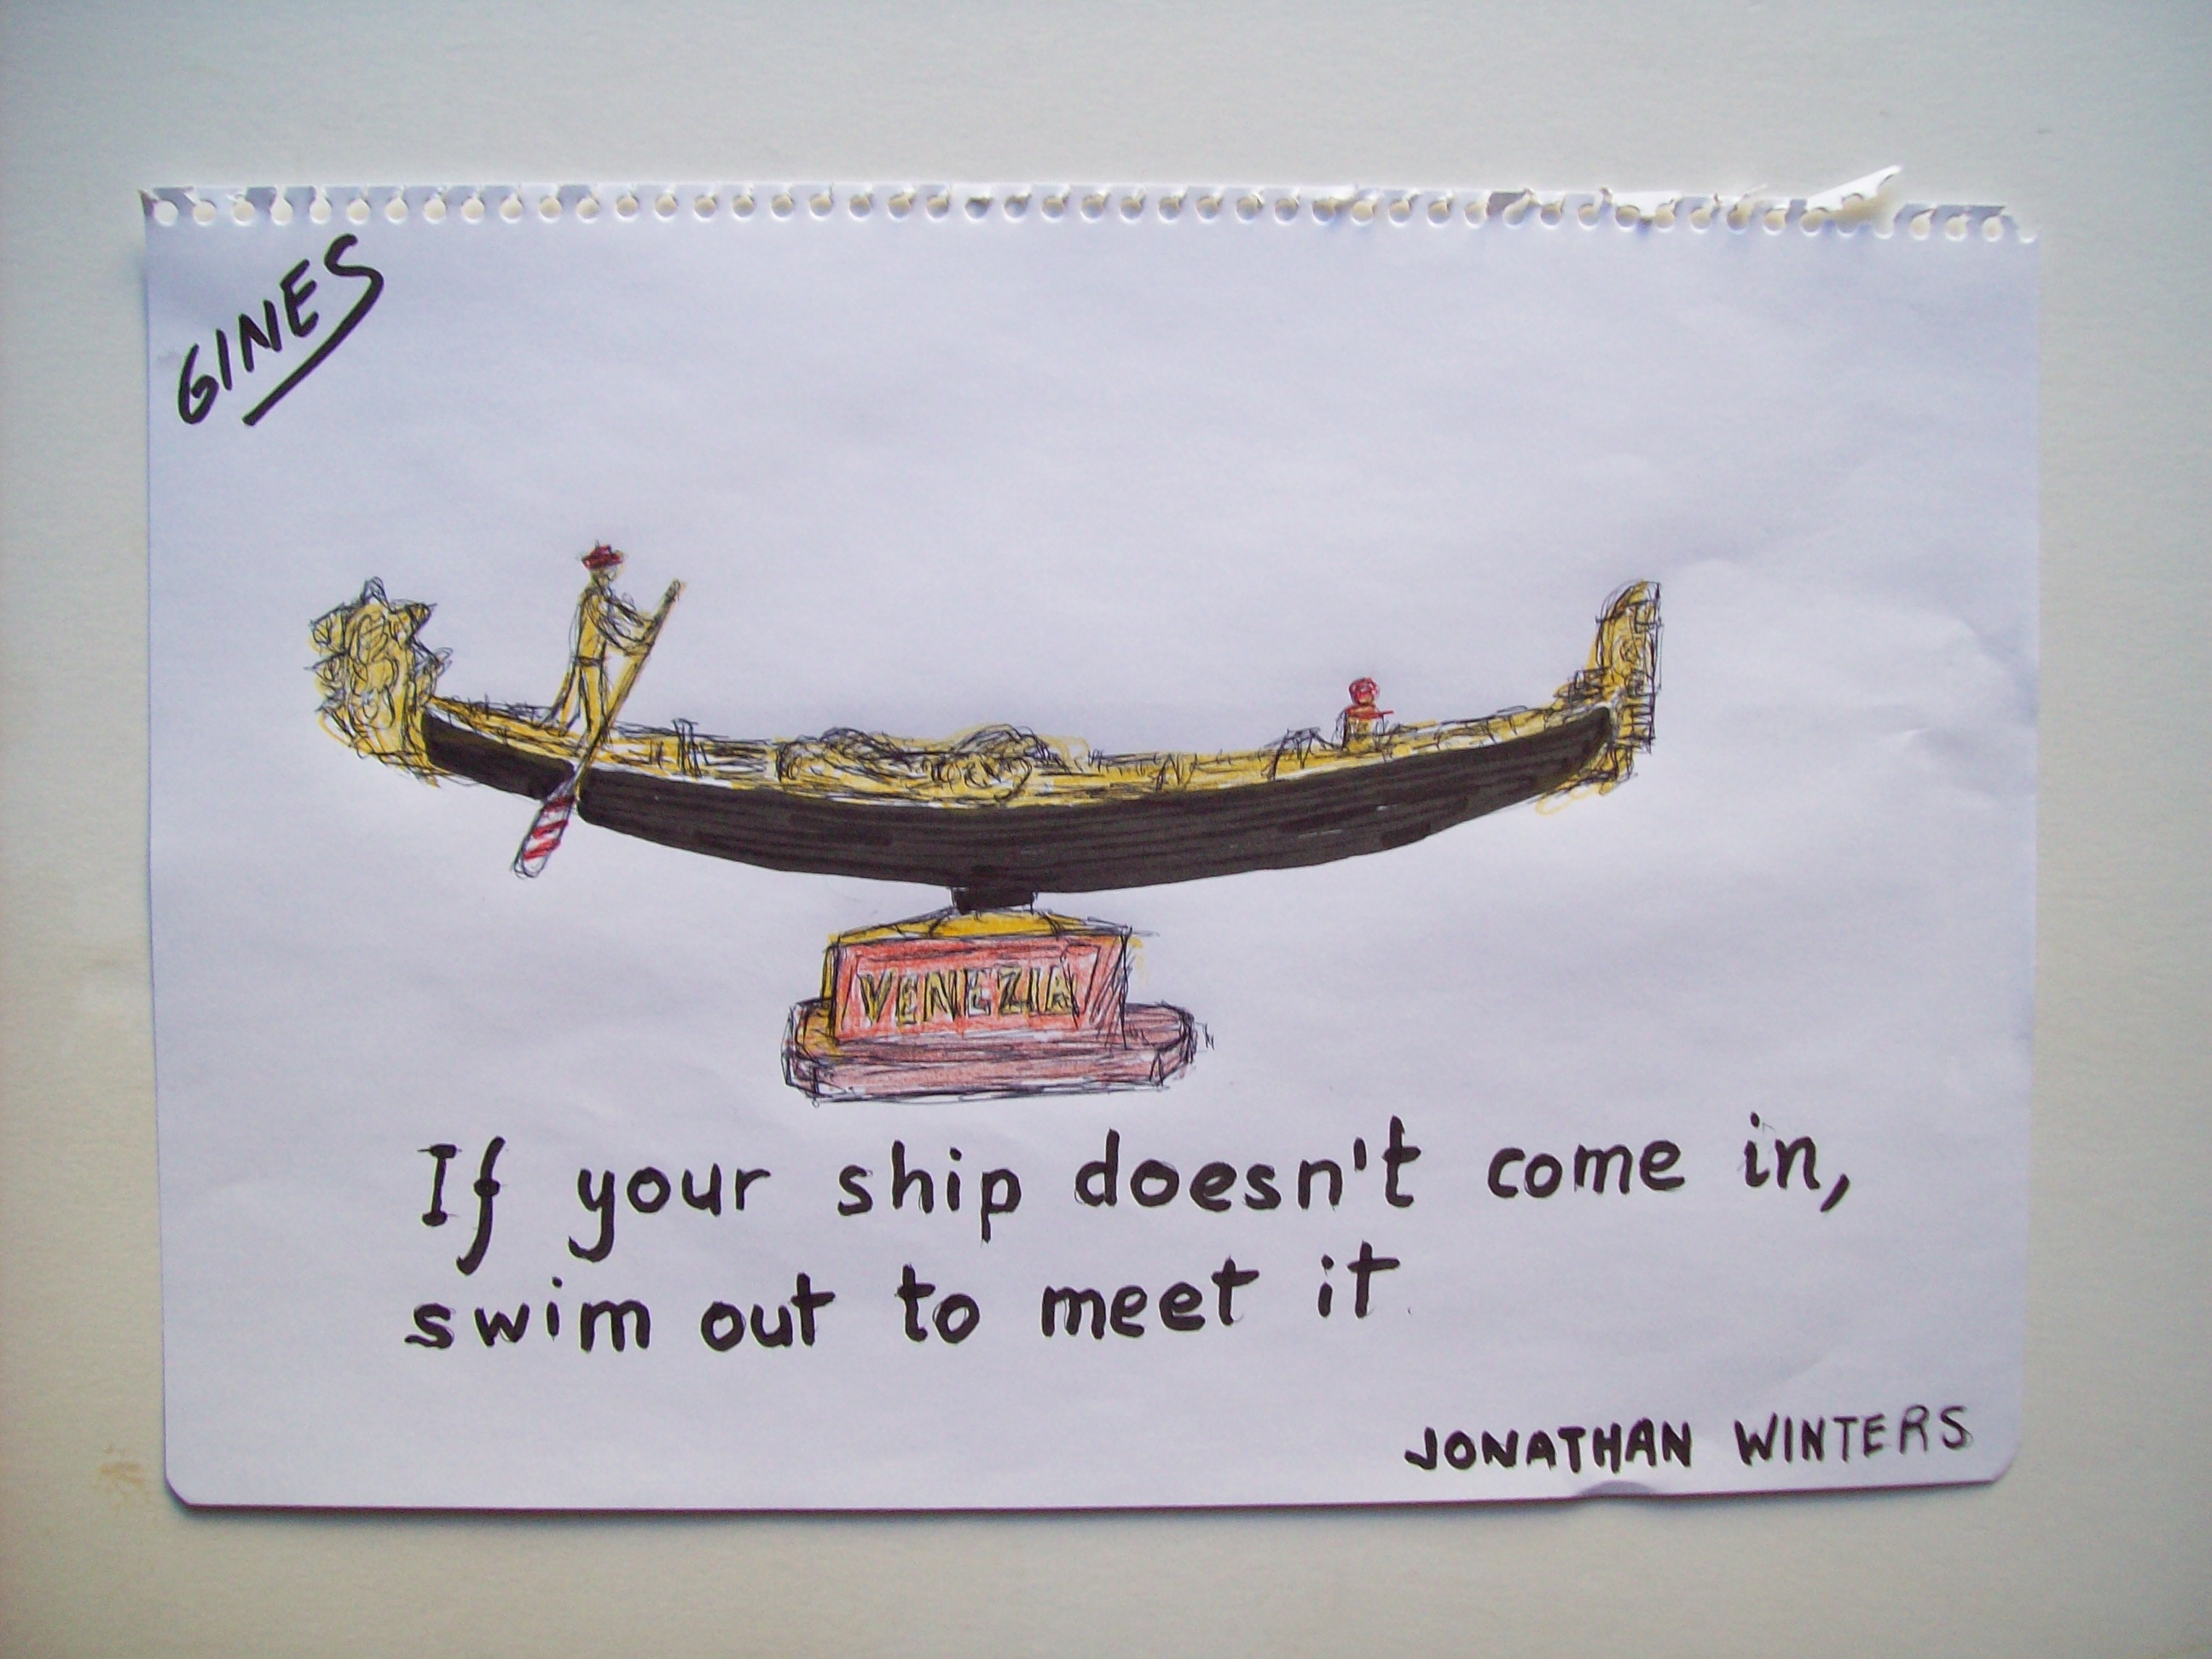 GINES
VENEZIA
If your ship doesn't come in,
swim out to meet it.
JONATHAN WINTERS